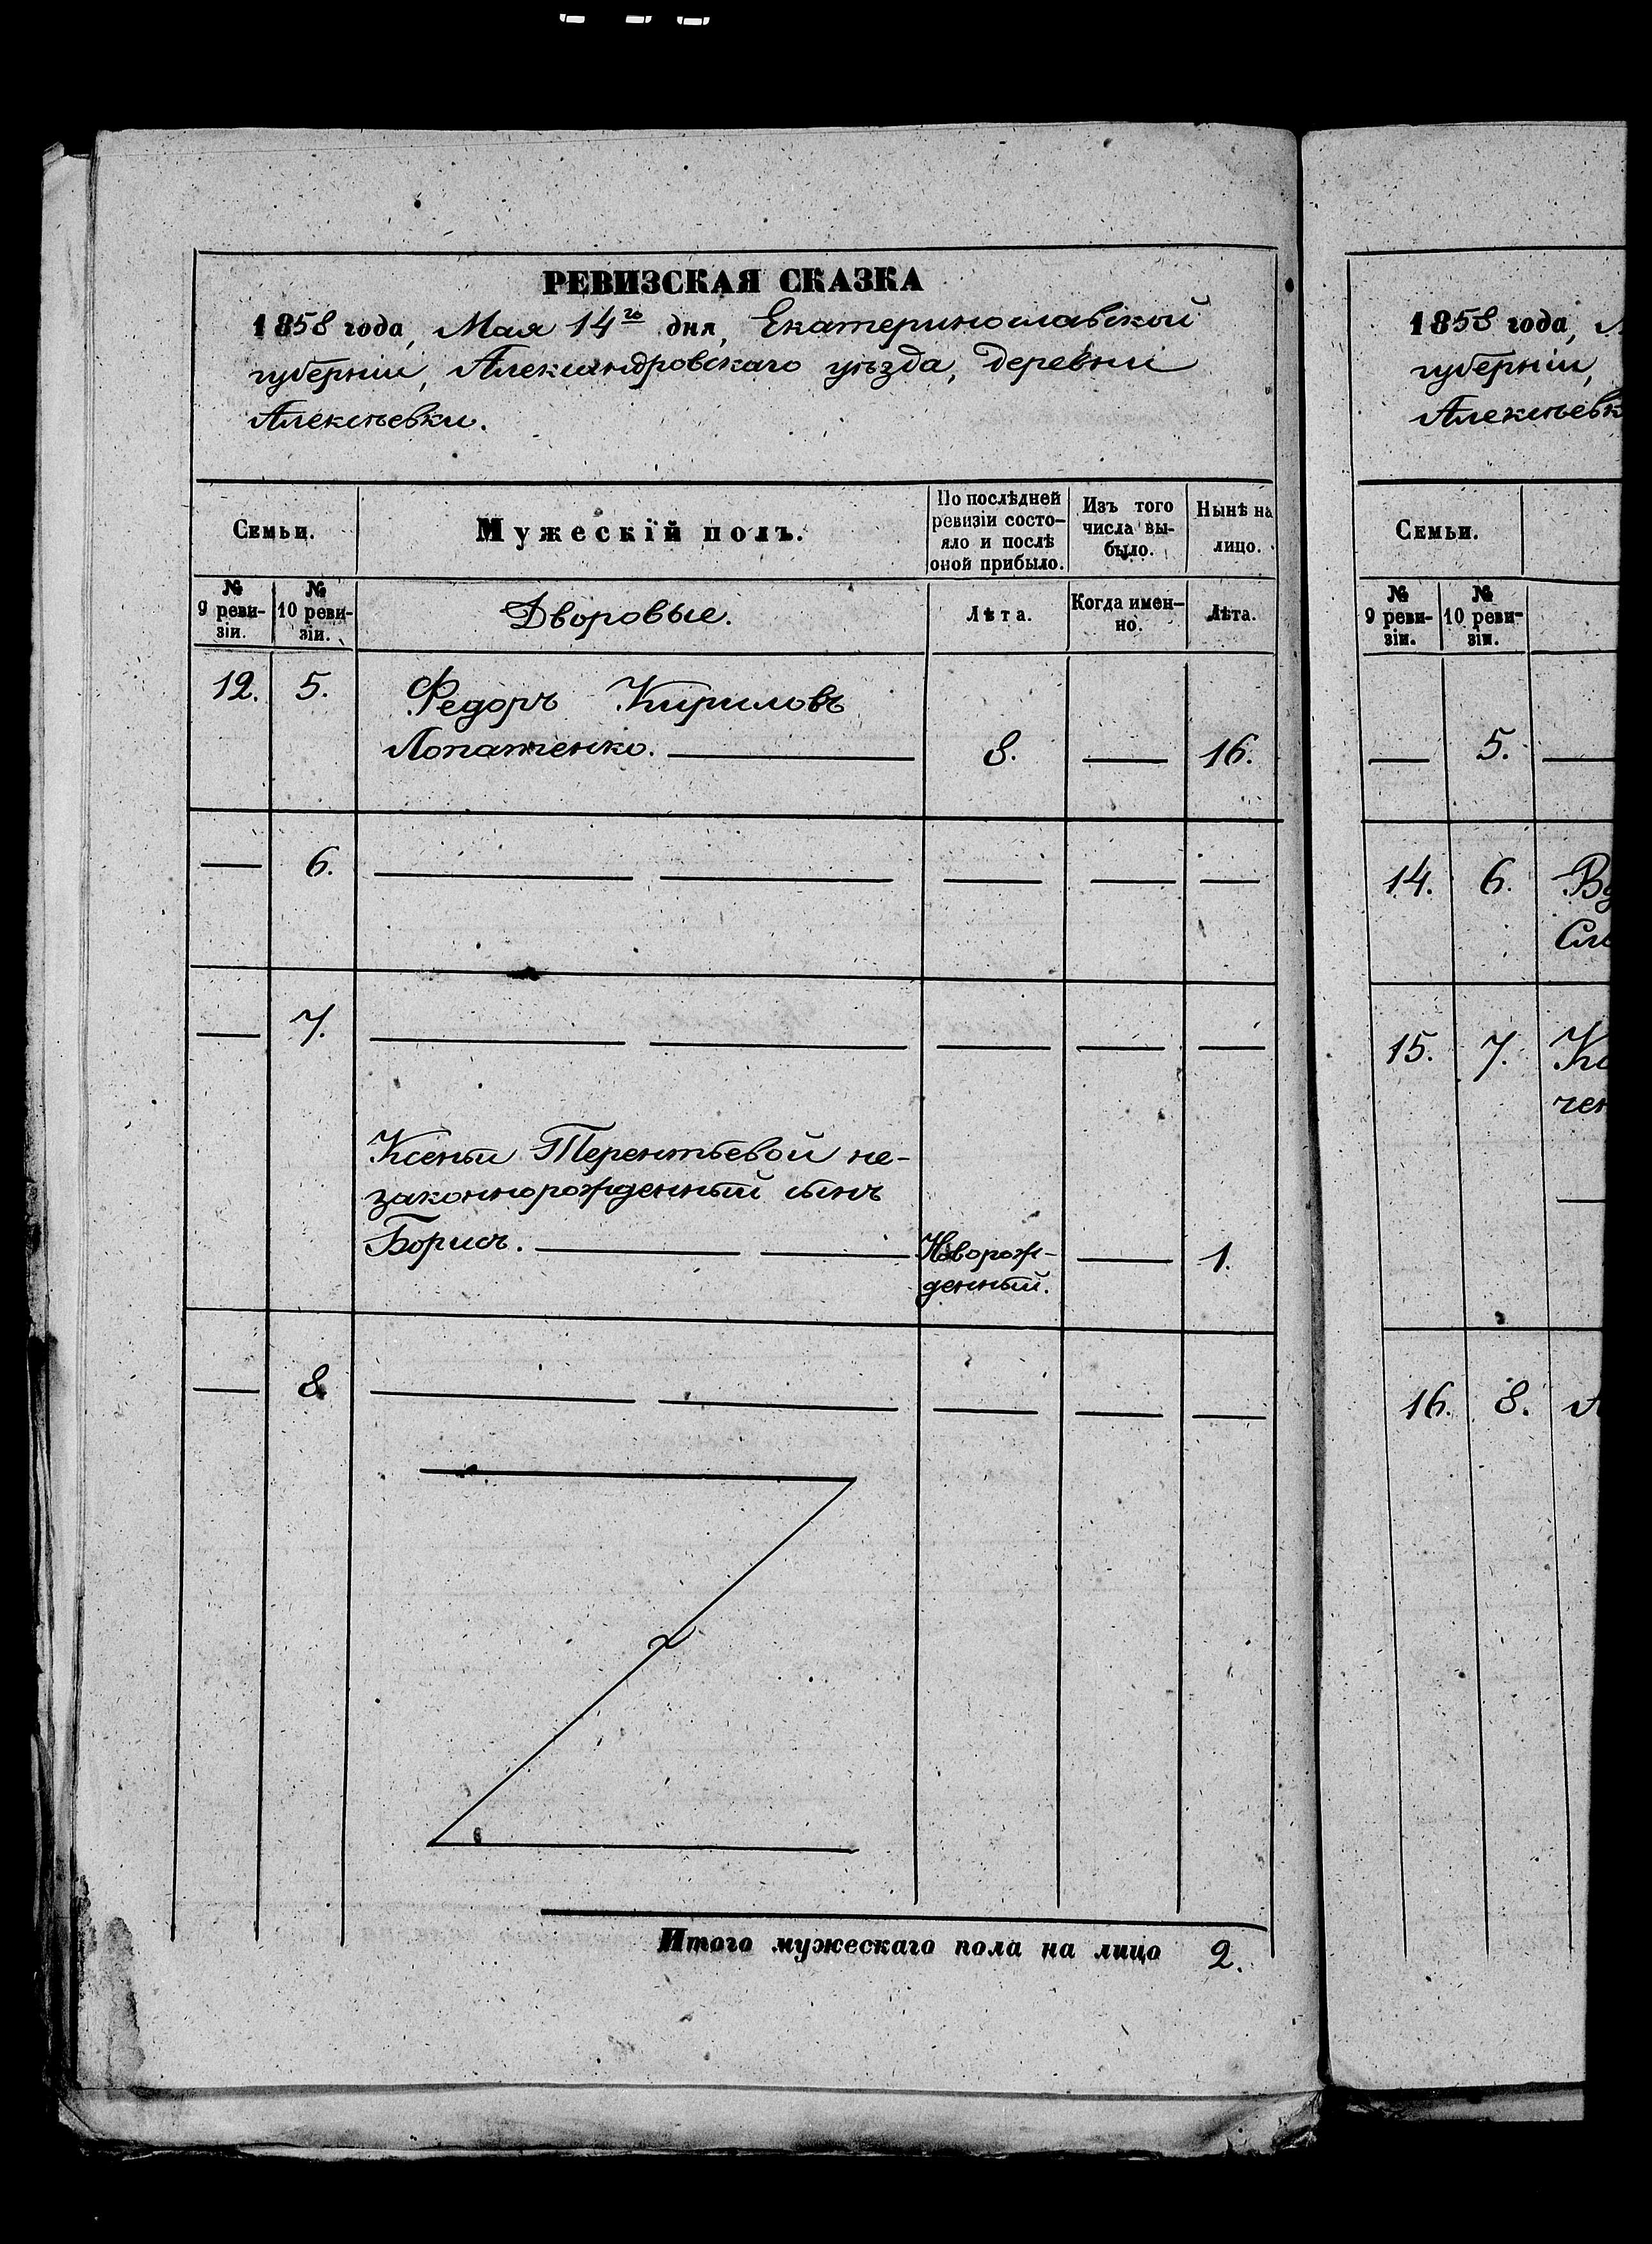 РЕВИЗСКАЯ СКАЗКА
1858 года, Мая 14го дня, Екатеринославской
губерніи, Александровскаго уѣзда, деревни
Алексѣевки.
Семьи.
Мужескій полъ.
По послѣдней
ревизіи состо-
яло и послѣ
оной прибыло.
Изъ того
числа вы-
было.
Нынѣ на
лицо.
№
9 реви-
зіи.
№
10 реви-
зіи.
Дворовые.
Лѣта.
Когда имен-
но.
Лѣта.
12. 5. Федоръ Кириловъ
Лопатенко. 8. — 16.
— 6. — — — — —
— 7. — — — — —
Ксеньи Терентьевой не-
законнорожденный сынъ
Борисъ. — — Новорож- — 1.
денный.
— 8. — — — — —
Итого мужескаго пола на лицо 2.
1858 года,
губерніи,
Алексѣевк
Семьи.
№
9 реви-
зіи.
№
10 реви-
зіи.
— 5. —
14. 6. Вд
Сл
15. 7.
чен
—
16. 8.